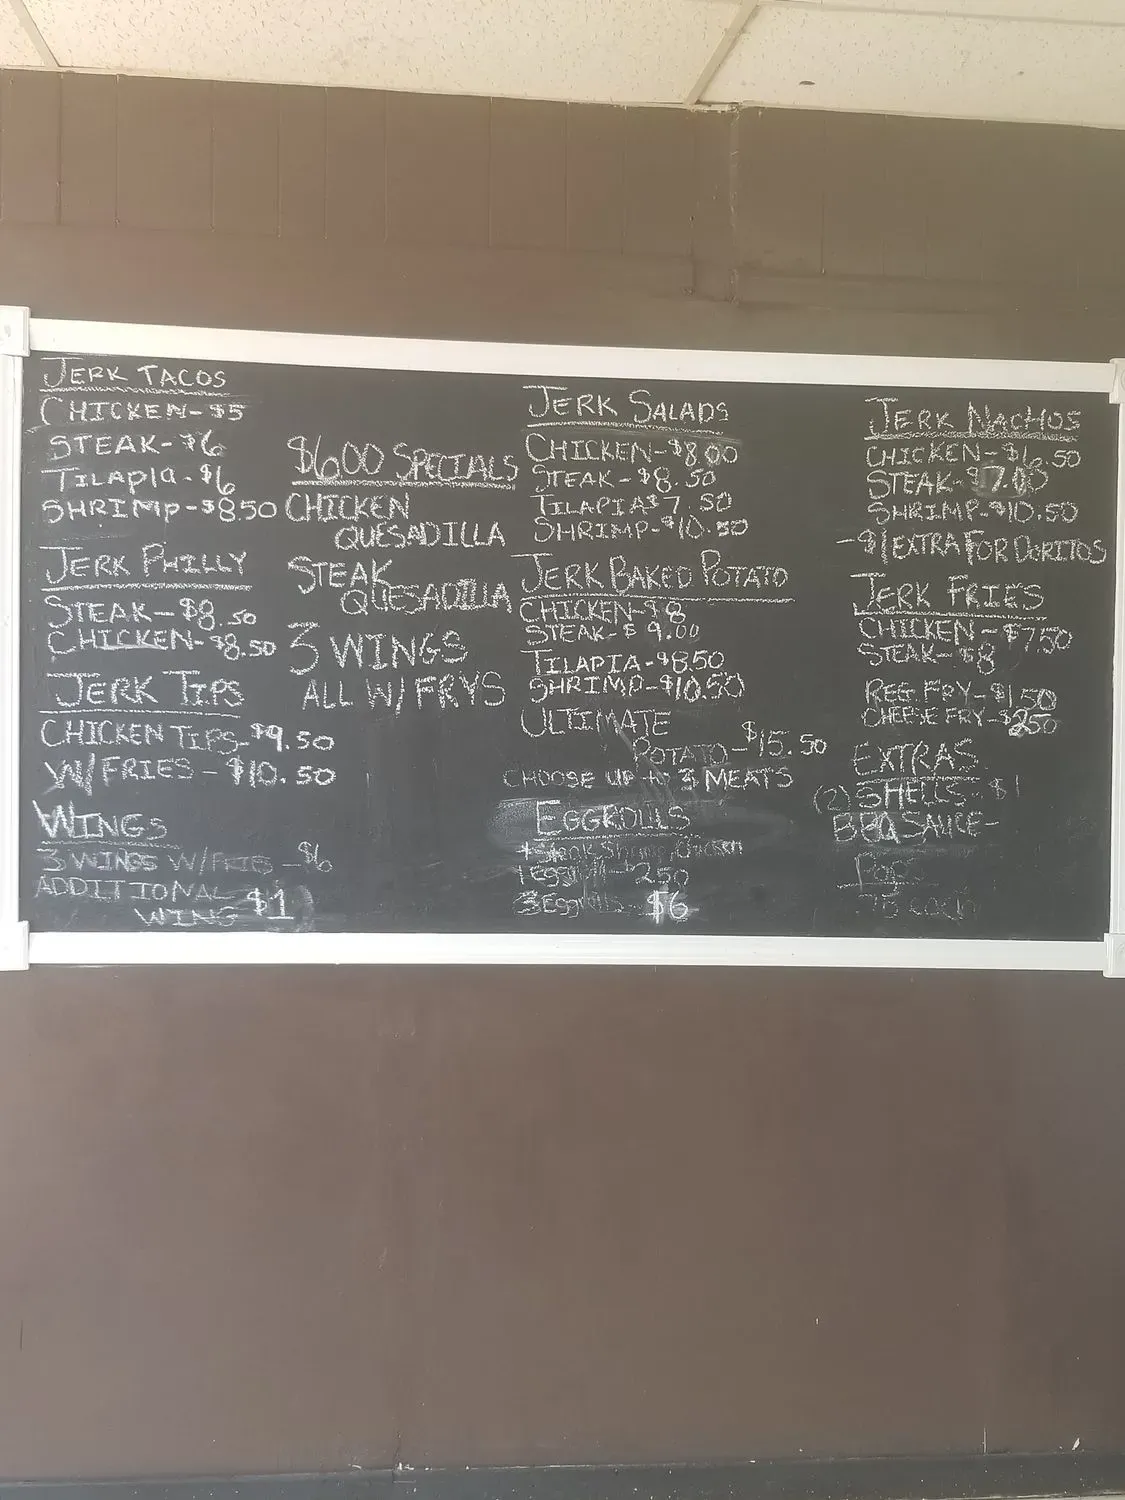 JERK TACOS
CHICKEN-$5
STEAK-$6
TILAPIA-$6
SHRIMP-$8.50
JERK PHILLY
STEAK-$8.50
CHICKEN-$8.50
JERK TIPS
CHICKEN TIPS-$9.50
W/FRIES-$10.50
WINGS
3 WINGS W/FRIES-$6
ADDITIONAL
WING $1
$6.00 SPECIALS
CHICKEN
QUESADILLA
STEAK
QUESADILLA
3 WINGS
ALL W/ FRYS
JERK SALADS
CHICKEN-$8.00
STEAK-$8.50
TILAPIA $7.50
SHRIMP-$10.50
JERK BAKED POTATO
CHICKEN-$8
STEAK-$9.00
TILAPIA-$8.50
SHRIMP-$10.50
ULTIMATE
POTATO-$15.50
CHOOSE UP to 3 MEATS
EGGROLLS
Steak, Shrimp, Chicken
1 Eggroll-$2.50
3 Eggrolls-$6
JERK NACHOS
CHICKEN-$6.50
STEAK-$7.00
SHRIMP-$10.50
-$1 EXTRA FOR DORITOS
JERK FRIES
CHICKEN-$7.50
STEAK-$8
REG. FRY-$1.50
CHEESE FRY-$2.50
EXTRAS
(2) SHELLS-$1
BBQ SAUCE-
.75 each